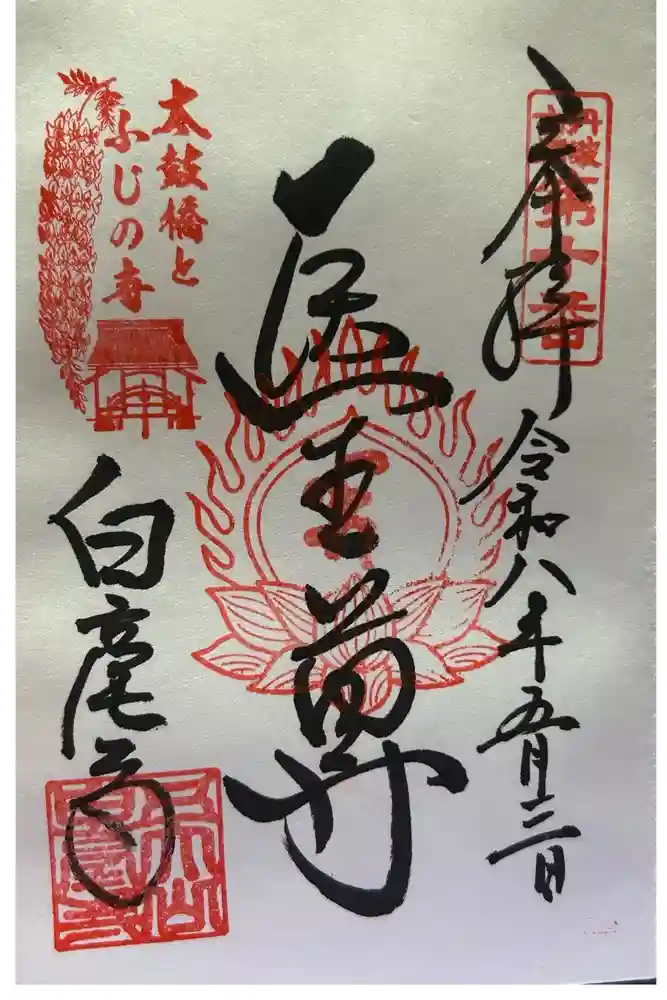 奉拝 令和八年五月三日
丹波
第十番
医王尊
太鼓橋と
ふじの寺
白毫寺